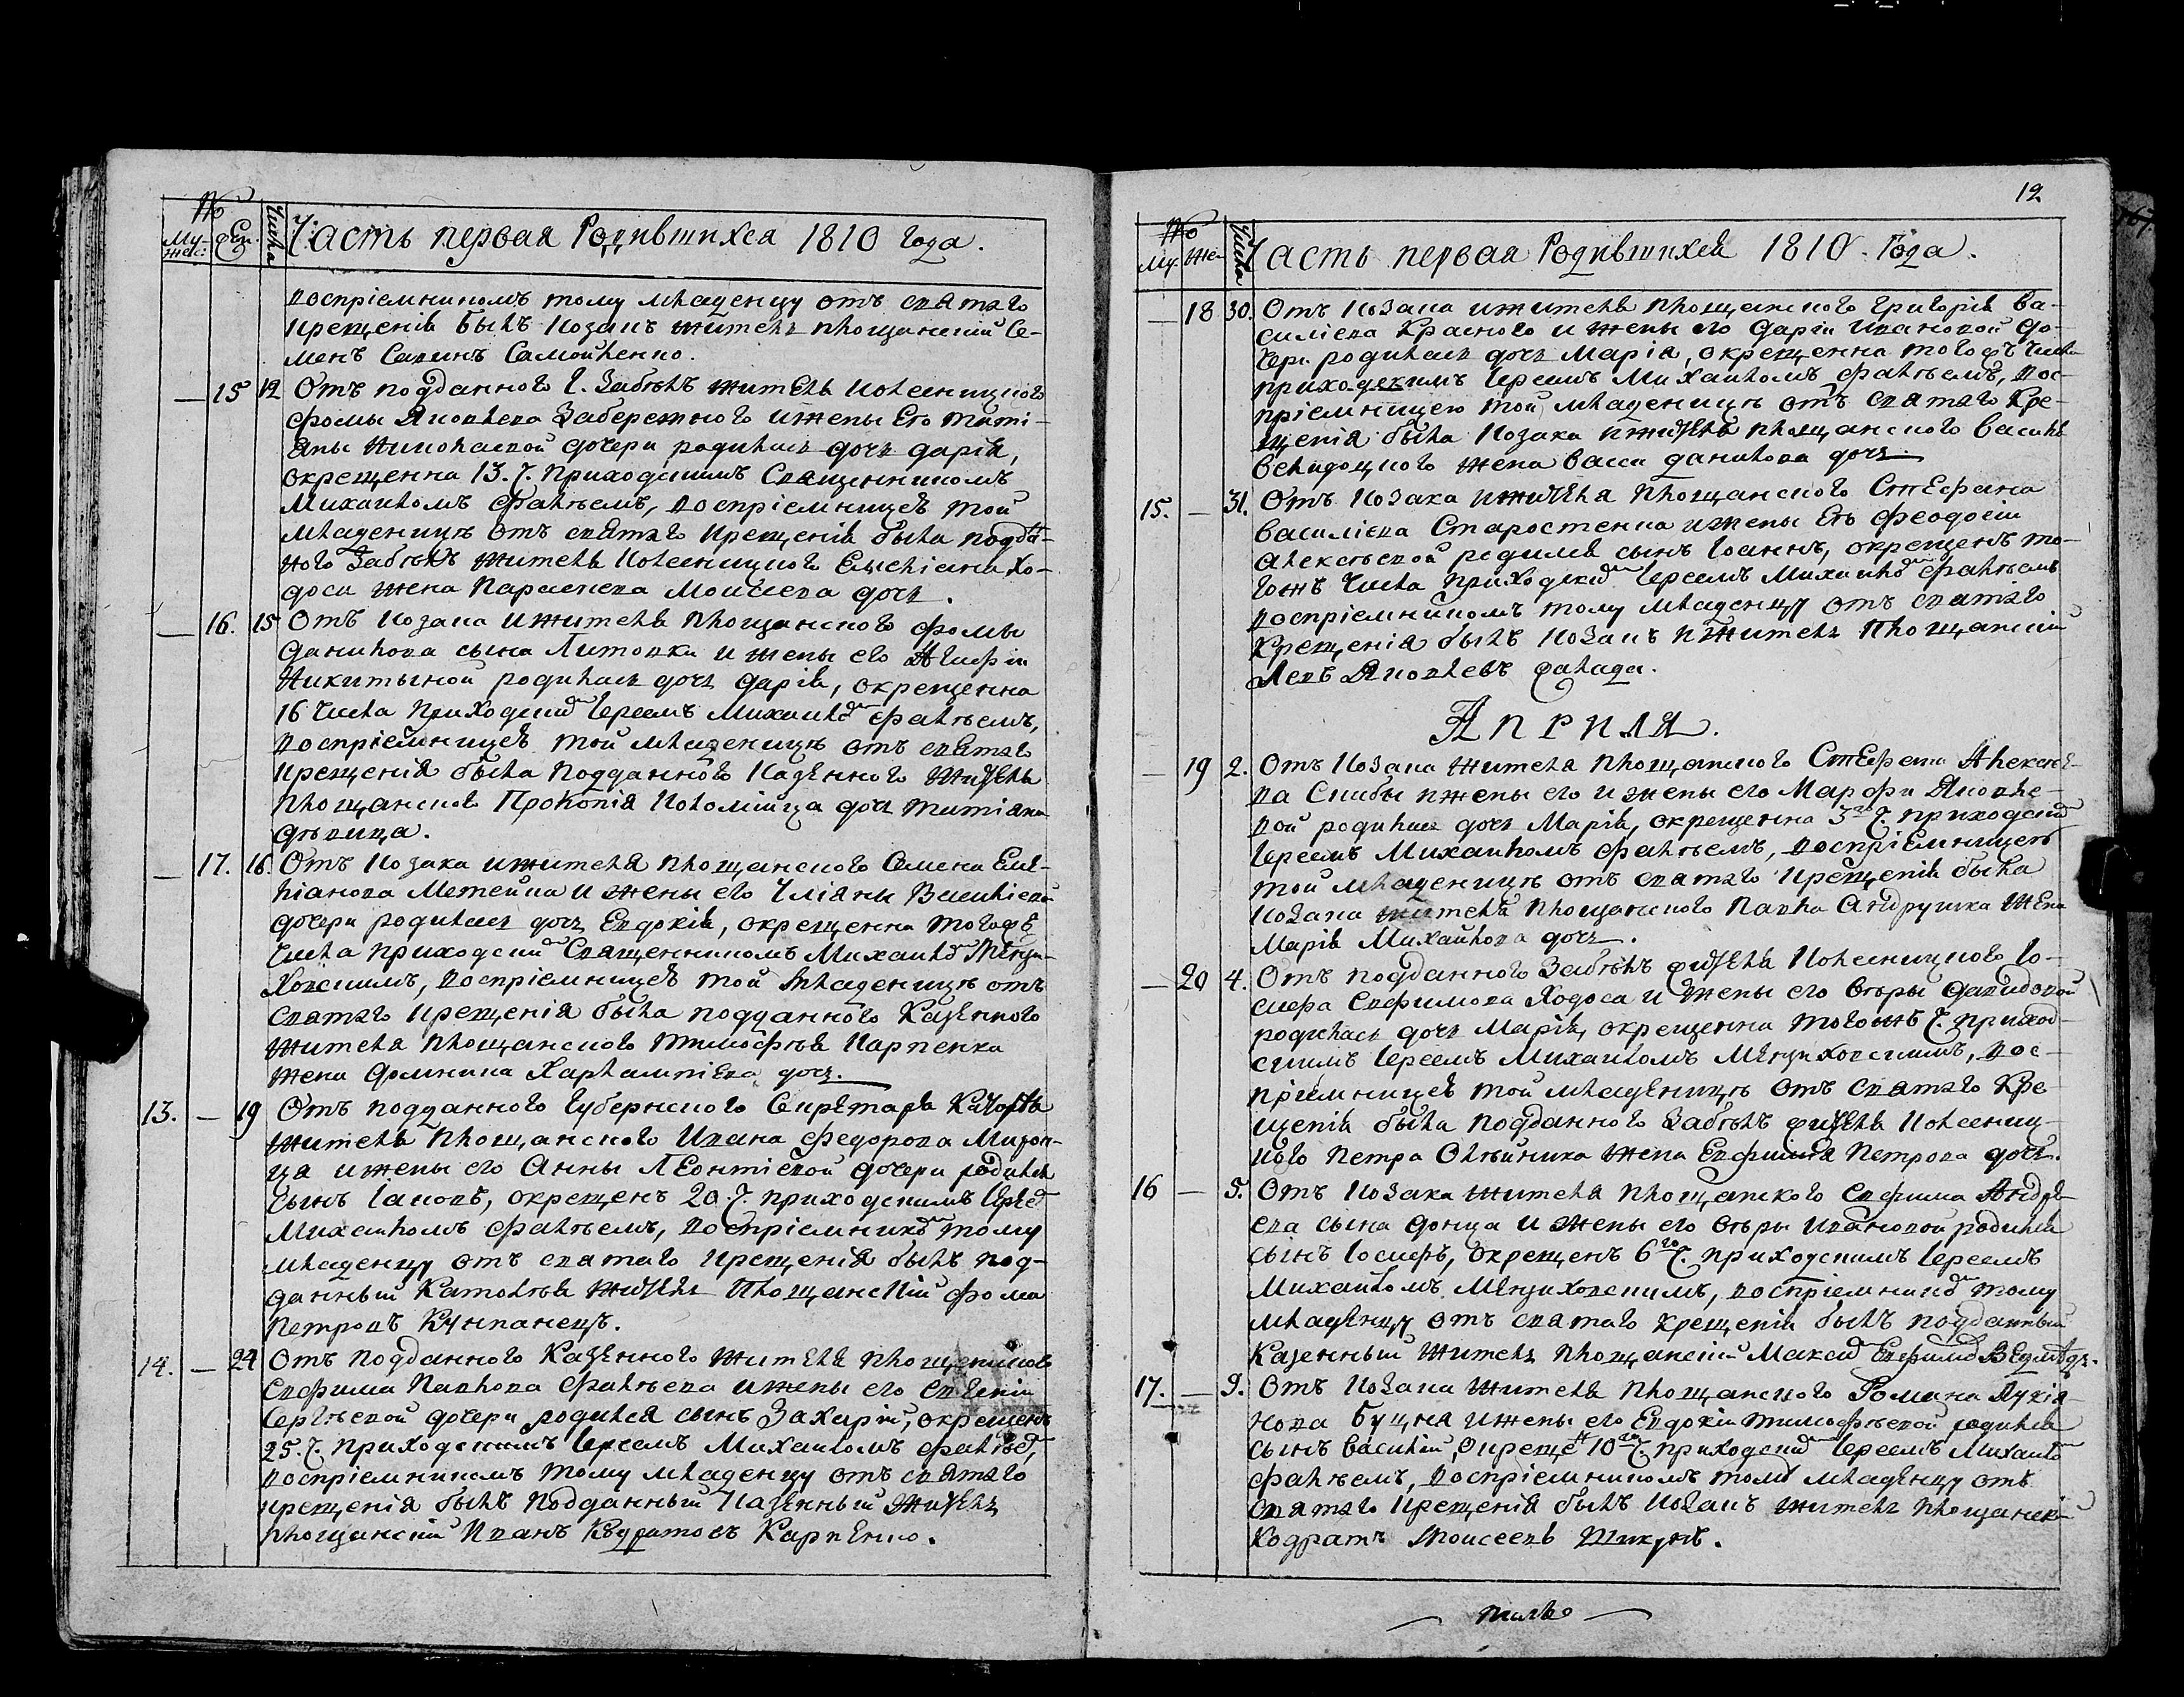 №
Му- Фем. Числа Часть первая Родившихся 1810 года.
жес:
воспріемникомъ тому младенцу отъ святаго
крещенія былъ козакъ житель площанский Се-
менъ Савинъ Самойленко.
15 12 Отъ подданного Г. Забѣлъ жителя колесницкого
Фомы Яковлева Забережного и жены Его Тати-
яны Николаевой дочери родилась дочь Дарія,
окрещенна 13. Ч. Приходскимъ Священникомъ
Михаиломъ Фалѣемъ, воспріемницею той
младеницѣ отъ святаго крещенія была поддан-
ного Забѣлъ жителя колесницкого Емеліана Хо-
доса жена Параскева Моисеева дочь.
16. 15 Отъ козака и жителя площанского Фомы
Данилова сына Литовки и жены его Агафіи
Никитыной родилась дочь Дарія, окрещенна
16 числа Приходским Іереемъ Михаилом Фалѣемъ,
воспріемницею той младеницѣ отъ святаго
крещенія была подданного казенного жителя
площанского Прокопія Коломійца дочь Татіана
дѣвица.
17. 16. Отъ козака и жителя площанского Семена Еме-
ліанова Метейка и жены его Уліяны Василіевой
дочери родилась дочь Евдокія, окрещенна тогожъ
числа приходским Священникомъ Михаилом Менжи-
ховскимъ, воспріемницею той младеницѣ отъ
святаго крещенія была подданного казенного
жителя площанского Тимофѣя Карпенка
жена Домникія Харлампіева дочь.
13. — 19 Отъ подданного Губернского Секретаря
жителя площанского Ивана Федорова Мирон-
ца и жены его Анны Леонтіевой дочери родился
сынъ Іаковъ, окрещенъ 20. Ч. приходскимъ Іерее
Михаиломъ Фалѣемъ, воспріемником тому
младенцу отъ святаго крещенія былъ под-
данный житель Площанскій Фома
Петровъ
14. — 24 Отъ подданного казенного жителя площанского
Евфима Павлова Фалѣева и жены его Евгеніи
Сергѣевой дочери родился сынъ Захарій, окрещенъ
25. Ч. приходскимъ Іереемъ Михаиломъ Фалѣе,
воспріемникомъ тому младенцу отъ святаго
крещенія былъ подданный казенный житель
площанскій Иванъ Кодратовъ Карпенко.
12
№
Му. Же. Числа Часть первая Родившихся 1810. Года.
18 30. Отъ козака и жителя площанского Григорія Ва-
силіева Красного и жены его Даріи Ивановой до-
чери родилась дочь Марія, окрещенна тогожъ числа
приходскимъ Іереемъ Михаиломъ Фалѣемъ, вос-
пріемницею той младеницѣ отъ святаго Кре-
щенія была козака и жителя площанского Василя
Величоцкого жена Васса Данилова дочь.
15. — 31. Отъ козака и жителя площанского Стефана
Василіева Старостенка и жены Его Феодосіи
Алексѣевой родился сынъ Іоаннъ, окрещенъ то-
гожъ числа приходским Іереемъ Михаилом Фалѣемъ
воспріемникомъ тому младенцу отъ святаго
Крещенія былъ козакъ и житель Площанскій
Левъ Яковлевъ Фалада.
Априля.
— 19 2. Отъ козака жителя площанского Стефана Алексѣе-
ва Скибы и жены его и жены его Марфы Яковле-
вой родилась дочь Марія, окрещенна 3го Ч. приходским
Іереемъ Михаиломъ Фалѣемъ, воспріемницею
той младеницѣ отъ святаго крещенія была
козака жителя площанского Павла Андрушка жена
Марія Михайлова дочь.
— 20 4. Отъ подданного Забѣлъ жителя колесницкого Іо-
сифа Евфимова Ходоса и жены его Вѣры Давидовой
родилась дочь Марія, окрещенна тогожъ Ч. приход-
скимъ Іереемъ Михаиломъ Менжиховскимъ, вос-
пріемницею той младеницѣ отъ святаго Кре-
щенія была подданного Забѣлъ жителя колесниц-
кого Петра Олѣйника жена Евфимія Петрова дочь.
16 — 5. Отъ козака жителя площанского Евфима Андре-
ева сына Донца и жены его Вѣры Ивановой родился
сынъ Іосифъ, окрещенъ 6го Ч. приходскимъ Іереемъ
Михаиломъ Менжиховскимъ, воспріемником тому
младенцу отъ святаго крещенія былъ подданный
казенный житель площанскій Максим Евфимов
17. — 9. Отъ козака жителя площанского Романа Лукія-
нова Буцня и жены его Евдокіи Тимофѣевой родился
сынъ Василій, окрещен 10го Ч. приходским Іереемъ Михаилом
Фалѣемъ, воспріемникомъ тому младенцу отъ
святаго крещенія былъ козакъ житель площанскій
Кодратъ Моисеевъ Шикунъ.